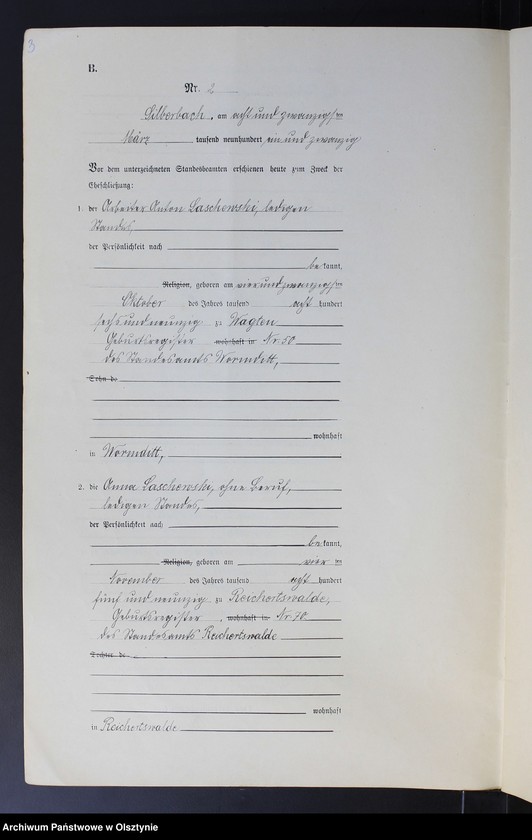 3
B.
Nr. 2
Silberbach, am acht und zwanzigsten
März tausend neunhundert ein und zwanzig
Vor dem unterzeichneten Standesbeamten erschienen heute zum Zweck der
Eheschließung:
1. der Arbeiter Anton Laschewski, ledigen
Standes,
der Persönlichkeit nach
bekannt,
Religion, geboren am vierundzwanzigsten
Oktober des Jahres tausend acht hundert
sechs und neunzig zu Wagten
Geburtsregister wohnhaft in Nr. 50
des Standesamts Wormditt,
Sohn de
wohnhaft
in Wormditt,
2. die Anna Laschewski, ohne Beruf,
ledigen Standes,
der Persönlichkeit nach
bekannt,
Religion, geboren am vier ten
November des Jahres tausend acht hundert
fünf und neunzig zu Reichertswalde,
Geburtsregister, wohnhaft in Nr 70
des Standesamts Reichertswalde
Tochter de
wohnhaft
in Reichertswalde
Archiwum Państwowe w Olsztynie